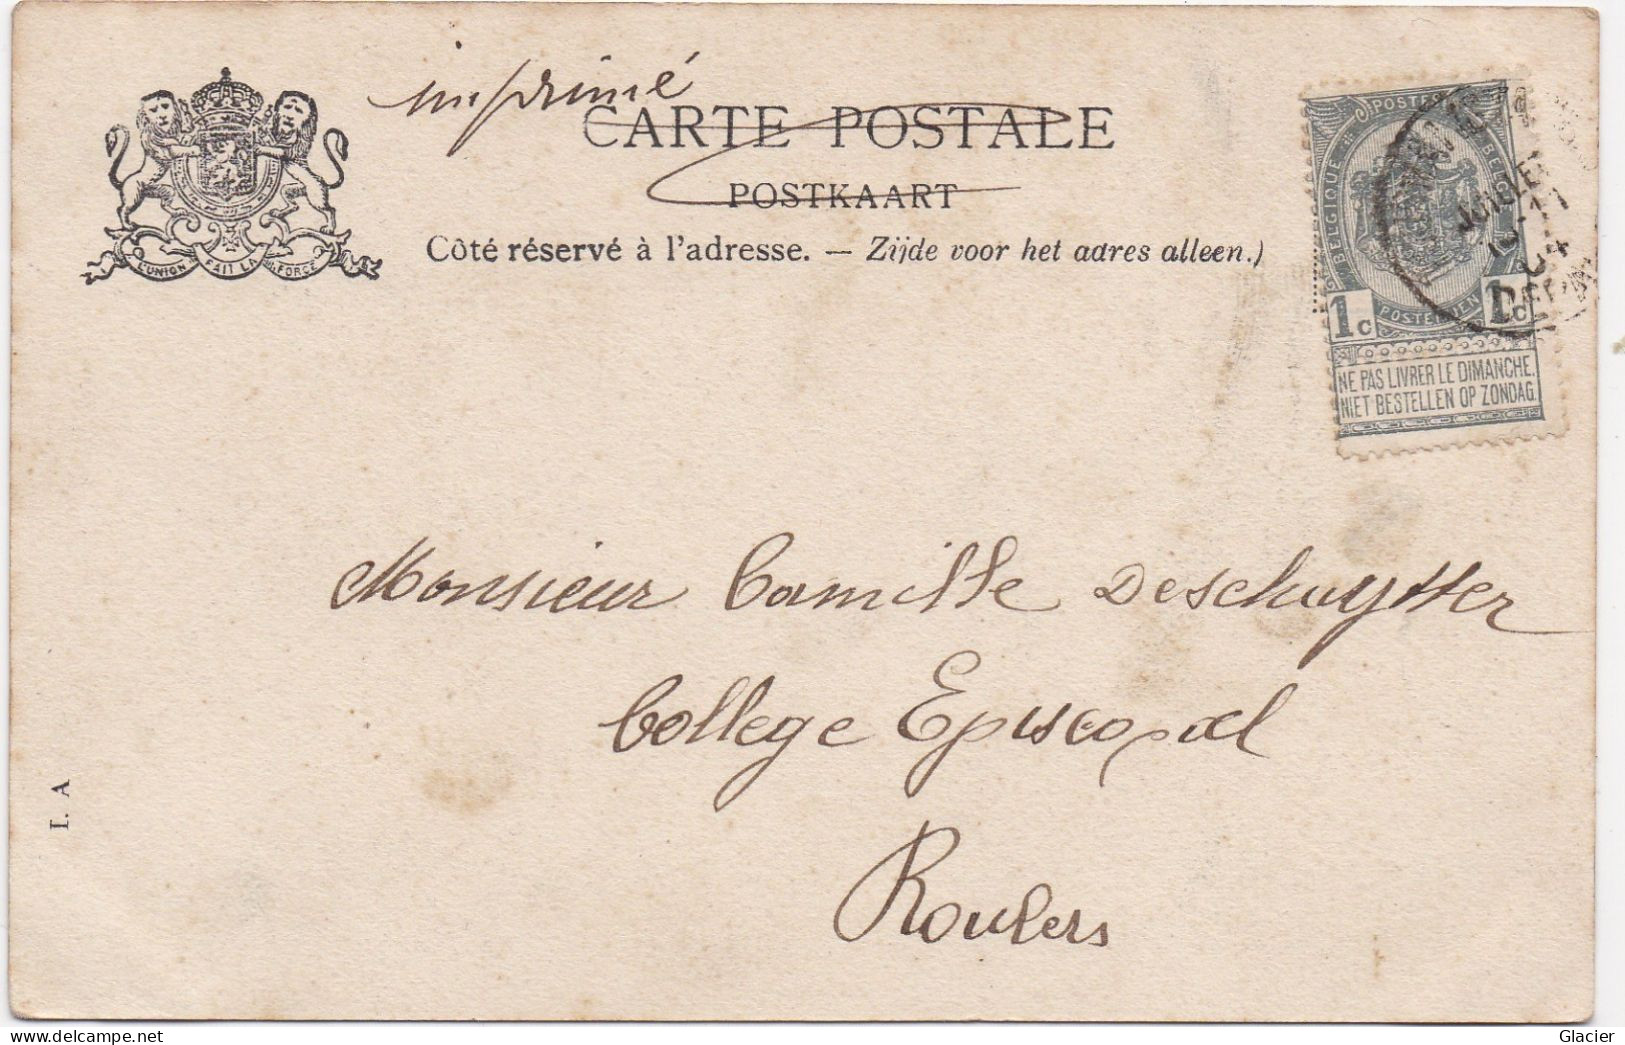 imprimé
CARTE POSTALE
POSTKAART
Côté réservé à l'adresse. — Zijde voor het adres alleen.)
L'UNION FAIT LA FORCE
POSTERIJEN
BELGIQUE
POSTES
1c 1c
NE PAS LIVRER LE DIMANCHE.
NIET BESTELLEN OP ZONDAG.
JUILLET
11
04
Monsieur Camille Deschuytter
College Episcopal
Roulers
L. A
Glacier